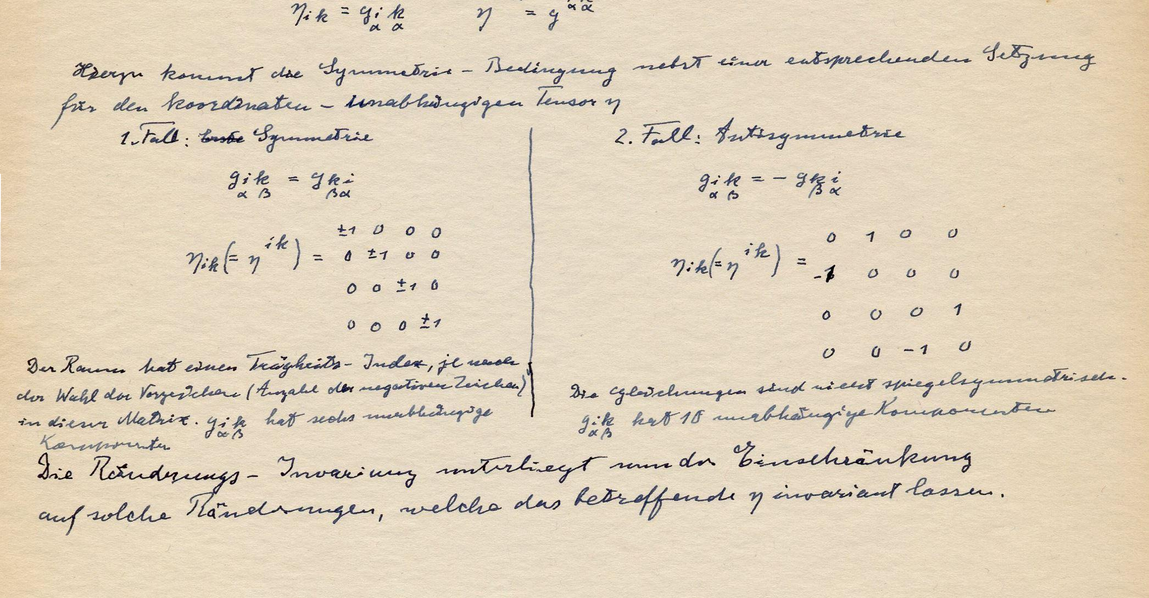 ηik = gik αα η = g αα
Hierzu kommt die Symmetrie-Bedingung nebst einer entsprechenden Setzung
für den koordinaten-unabhängigen Tensor η
1. Fall: Symmetrie
gik αβ = gki βα
ηik(= η^ik) =
±1 0 0 0
0 ±1 0 0
0 0 ±1 0
0 0 0 ±1
Der Raum hat einen Trägheits-Index, je nach
der Wahl der Vorzeichen (Anzahl der negativen Zeichen)
in dieser Matrix. gik αβ hat sechs unabhängige
Komponenten
2. Fall: Antisymmetrie
gik αβ = - gki βα
ηik(= η^ik) =
0 1 0 0
-1 0 0 0
0 0 0 1
0 0 -1 0
Die Gleichungen sind nicht spiegelsymmetrisch.
gik αβ hat 10 unabhängige Komponenten
Die Ränderungs-Invarianz unterliegt nun der Einschränkung
auf solche Ränderungen, welche das betreffende η invariant lassen.